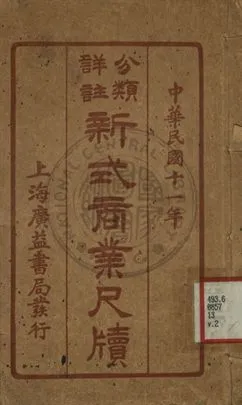 中華民國十一年
分類
詳註
新式商業尺牘
上海廣益書局發行
NATIONAL CENTRAL
493.6
0857
13
v.2